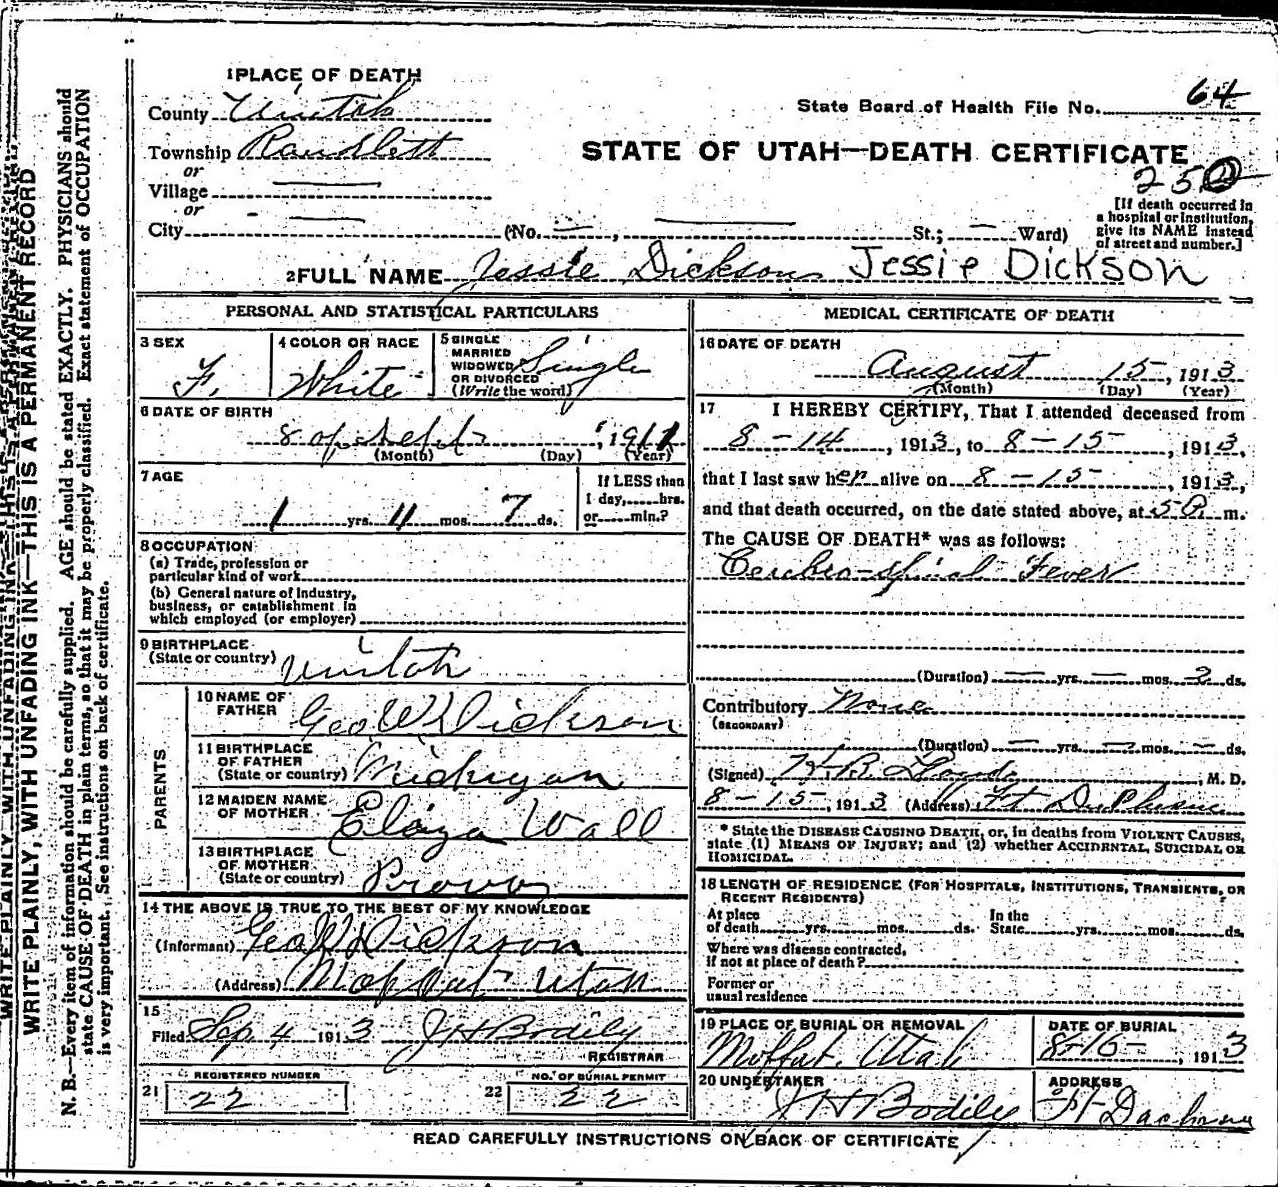 WRITE PLAINLY, WITH UNFADING INK—THIS IS A PERMANENT RECORD
N. B.—Every item of information should be carefully supplied. AGE should be stated EXACTLY. PHYSICIANS should
state CAUSE OF DEATH in plain terms, so that it may be properly classified. Exact statement of OCCUPATION
is very important. See instructions on back of certificate.
1 PLACE OF DEATH
County Uintah
Township Randlett
or
Village
or
City (No. , St.; Ward)
State Board of Health File No. 64
STATE OF UTAH—DEATH CERTIFICATE
250
[If death occurred in
a hospital or institution,
give its NAME instead
of street and number.]
2 FULL NAME Jessie Dickson Jessie Dickson
PERSONAL AND STATISTICAL PARTICULARS
3 SEX
F.
4 COLOR OR RACE
White
5 SINGLE
MARRIED
WIDOWED
OR DIVORCED
(Write the word)
Single
6 DATE OF BIRTH
8 of Sept , 1911
(Month) (Day) (Year)
7 AGE
1 yrs. 11 mos. 7 ds.
If LESS than
1 day, hrs.
or min.?
8 OCCUPATION
(a) Trade, profession or
particular kind of work
(b) General nature of Industry,
business, or establishment in
which employed (or employer)
9 BIRTHPLACE
(State or country) Uintah
PARENTS
10 NAME OF
FATHER Geo W Dickson
11 BIRTHPLACE
OF FATHER
(State or country) Michigan
12 MAIDEN NAME
OF MOTHER Eliza Wall
13 BIRTHPLACE
OF MOTHER
(State or country) Provo
14 THE ABOVE IS TRUE TO THE BEST OF MY KNOWLEDGE
(Informant) Geo W Dickson
(Address) Moffat Utah
15
Filed Sep 4 1913 J H Bodily
REGISTRAR
REGISTERED NUMBER
21 22
NO. OF BURIAL PERMIT
22 22
MEDICAL CERTIFICATE OF DEATH
16 DATE OF DEATH
August 15, 1913
(Month) (Day) (Year)
17 I HEREBY CERTIFY, That I attended deceased from
8-14, 1913, to 8-15, 1913,
that I last saw her alive on 8-15, 1913,
and that death occurred, on the date stated above, at 5 P. m.
The CAUSE OF DEATH* was as follows:
Cerebro-spinal Fever
(Duration) yrs. mos. 2 ds.
Contributory None
(SECONDARY)
(Duration) yrs. mos. ds.
(Signed) H B , M. D.
8-15, 1913 (Address) Ft Duchesne
* State the DISEASE CAUSING DEATH, or, in deaths from VIOLENT CAUSES,
state (1) MEANS OF INJURY; and (2) whether ACCIDENTAL, SUICIDAL OR
HOMICIDAL.
18 LENGTH OF RESIDENCE (FOR HOSPITALS, INSTITUTIONS, TRANSIENTS, OR
RECENT RESIDENTS)
At place
of death yrs. mos. ds.
In the
State yrs. mos. ds.
Where was disease contracted,
if not at place of death?
Former or
usual residence
19 PLACE OF BURIAL OR REMOVAL
Moffat, Utah
DATE OF BURIAL
8-16-, 1913
20 UNDERTAKER
J H Bodily
ADDRESS
Ft Duchesne
READ CAREFULLY INSTRUCTIONS ON BACK OF CERTIFICATE